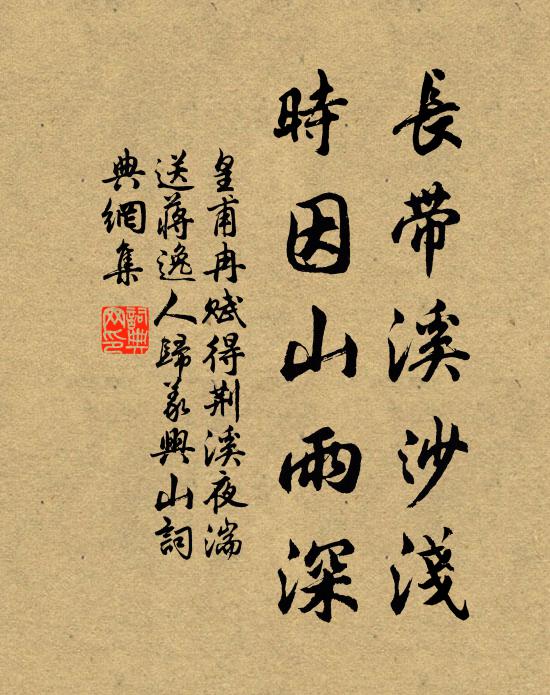 長帶溪沙淺
時因山雨深
皇甫冉賦得荆溪夜湍
送蔣逸人歸義興山詞
典網集
詞典网印